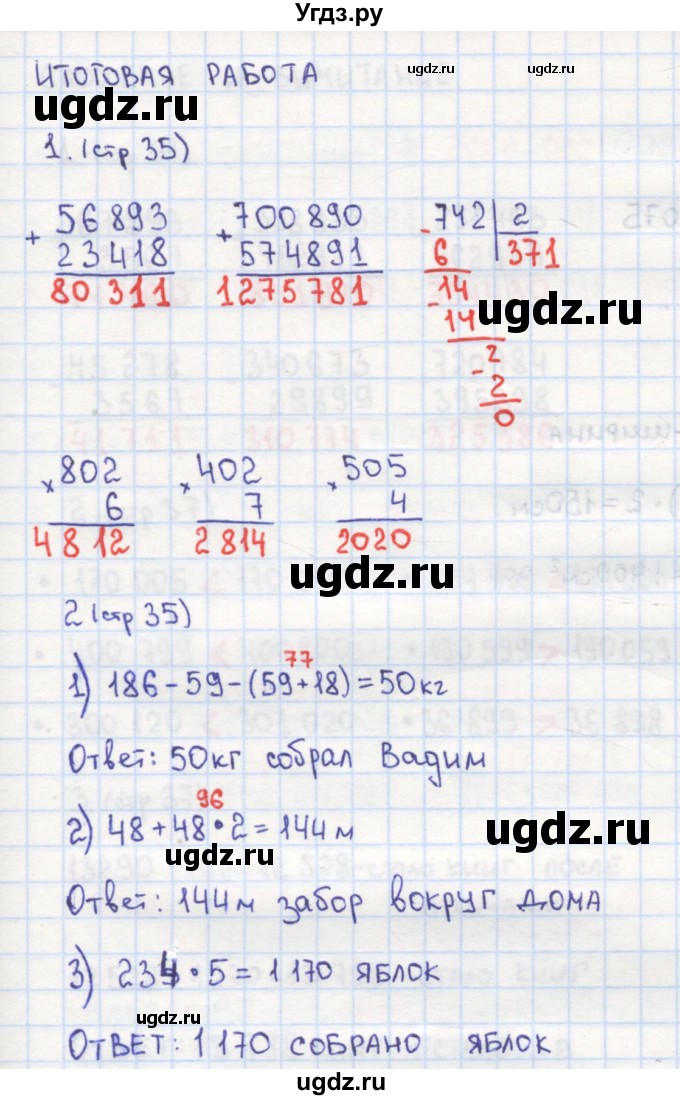 Угдз.ру
ИТОГОВАЯ РАБОТА
ugdz.ru ugdz.ru
ugdz.ru
1. (стр 35)
+ 56893 + 700890 - 742 | 2
23418 574891 6 371
80311 1275781 - 14
14
ugdz.ru
2
- 2
0
× 802 × 402 × 505
6 7 4
4812 2814 2020
ugdz.ru
2 (стр 35)
77
1) 186-59-(59+18)=50кг
ugdz.ru
Ответ: 50кг собрал Вадим
96
2) 48+48•2=144м
ugdz.ru
ugdz.ru
Ответ: 144м забор вокруг дома
3) 234•5=1170 яблок
ugdz.ru
ОТВЕТ: 1170 СОБРАНО ЯБЛОК
ugdz.ru